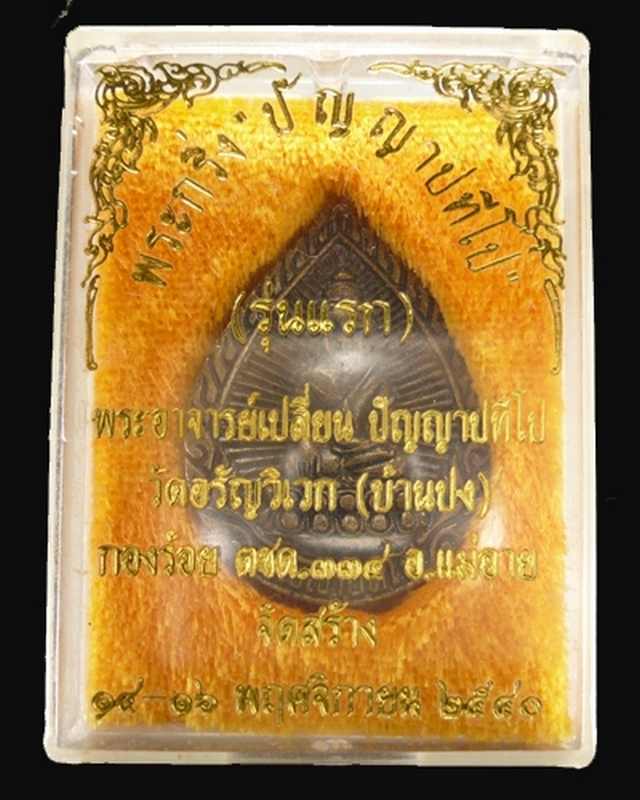 พระกริ่ง"ปัญญาปทีโป"
(รุ่นแรก)
พระอาจารย์เปลี่ยน ปัญญาปทีโป
วัดอรัญวิเวก (บ้านปง)
กองร้อย ตชด.๓๓๔ อ.แม่อาย
จัดสร้าง
๑๔-๑๖ พฤศจิกายน ๒๕๔๐